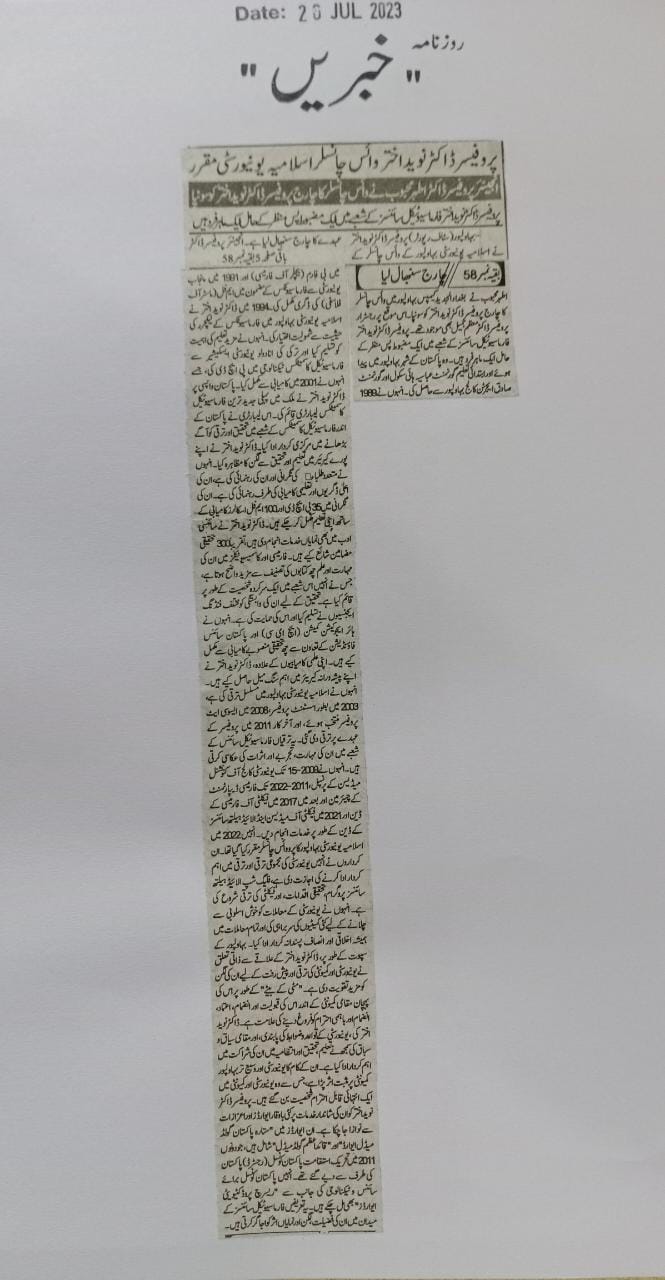 Date: 20 JUL 2023
روزنامہ
"خبریں"
پروفیسر ڈاکٹر نوید اختر وائس چانسلر اسلامیہ یونیورسٹی مقرر
انجینئر پروفیسر ڈاکٹر اطہر محبوب نے وائس چانسلر کا چارج پروفیسر ڈاکٹر نوید اختر کو سونپا
پروفیسر ڈاکٹر نوید اختر فارماسیوٹیکل سائنسز کے شعبے میں ایک مضبوط پس منظر کے حامل ایک ماہر فرد ہیں
بہاولپور (سٹاف رپورٹر) پروفیسر ڈاکٹر نوید اختر
نے اسلامیہ یونیورسٹی بہاولپور کے وائس چانسلر کے
عہدے کا چارج سنبھال لیا ہے۔ انجینئر پروفیسر ڈاکٹر
باقی صفحہ 5 بقیہ نمبر 58
بقیہ نمبر 58 // چارج سنبھال لیا
اطہر محبوب نے بغداد الجدید کیمپس بہاولپور میں وائس چانسلر
کا چارج پروفیسر ڈاکٹر نوید اختر کو سونپا۔ اس موقع پر رجسٹرار
پروفیسر ڈاکٹر معظم جمیل بھی موجود تھے۔ پروفیسر ڈاکٹر نوید اختر
فارماسیوٹیکل سائنسز کے شعبے میں ایک مضبوط پس منظر کے
حامل ایک ماہر فرد ہیں۔ وہ پاکستان کے شہر بہاولپور میں پیدا
ہوئے اور ابتدائی تعلیم گورنمنٹ عباسیہ ہائی سکول اور گورنمنٹ
صادق ایجرٹن کالج بہاولپور سے حاصل کی۔ انہوں نے 1989
میں بی فارم (بیچلر آف فارمیسی) اور 1991 میں پنجاب
یونیورسٹی سے فارماسیوٹکس کے مضمون میں ایم فل (ماسٹر آف
فلاسفی) کی ڈگری مکمل کی۔ 1994 میں ڈاکٹر نوید اختر نے
اسلامیہ یونیورسٹی بہاولپور میں فارماسیوٹکس کے لیکچرر کی
حیثیت سے شمولیت اختیار کی۔ انہوں نے مزید تعلیم کی اہمیت
کو تسلیم کیا اور ترکی کی انادولو یونیورسٹی ایسکیشیر سے
ڈاکٹر کاسمیٹکس ٹیکنالوجی میں پی ایچ ڈی کی، جسے
انہوں نے 2001 میں کامیابی سے مکمل کیا۔ پاکستان واپسی پر
ڈاکٹر نوید اختر نے ملک میں پہلی جدید ترین فارماسیوٹیکل
کاسمیٹکس لیبارٹری قائم کی۔ اس لیبارٹری نے پاکستان کے
اندر فارماسیوٹیکل کاسمیٹکس کے شعبے میں تحقیق اور ترقی کو آگے
بڑھانے میں مرکزی کردار ادا کیا۔ ڈاکٹر نوید اختر نے اپنے
پورے کیریئر میں تعلیم اور تحقیق سے لگن کا مظاہرہ کیا۔ انہوں
نے متعدد طلباء کی نگرانی اور ان کی رہنمائی کی ہے، ان کی
اعلیٰ ڈگریوں اور تعلیمی کامیابی کی طرف رہنمائی کی ہے۔ ان کی
نگرانی میں 35 پی ایچ ڈی اور 100 ایم فل اسکالرز کامیابی کے
ساتھ اپنی تعلیم مکمل کر چکے ہیں۔ ڈاکٹر نوید اختر نے سائنسی
ادب میں بھی نمایاں خدمات انجام دی ہیں، تقریباً 300 تحقیقی
مضامین شائع کیے ہیں۔ فارمیسی اور کاسمیسیوٹیکلز میں ان کی
مہارت اور علم چھ کتابوں کی تصنیف سے مزید واضح ہوتا ہے،
جس نے انہیں اس شعبے میں ایک سرکردہ شخصیت کے طور پر
قائم کیا ہے۔ تحقیق کے لیے ان کی وابستگی کو مختلف فنڈنگ
ایجنسیوں نے تسلیم کیا اور اس کی حمایت کی ہے۔ انہوں نے
ہائر ایجوکیشن کمیشن (ایچ ای سی) اور پاکستان سائنس
فاؤنڈیشن کے تعاون سے چھ تحقیقی منصوبے کامیابی سے مکمل
کیے ہیں۔ اپنی علمی کامیابیوں کے علاوہ، ڈاکٹر نوید اختر نے
اپنے پیشہ ورانہ کیریئر میں اہم سنگ میل حاصل کیے ہیں۔
انہوں نے اسلامیہ یونیورسٹی بہاولپور میں مسلسل ترقی کی ہے،
2003 میں بطور اسسٹنٹ پروفیسر، 2008 میں ایسوسی ایٹ
پروفیسر منتخب ہوئے، اور آخر کار 2011 میں پروفیسر کے
عہدے پر ترقی دی گئی۔ یہ ترقیاں فارماسیوٹیکل سائنس کے
شعبے میں ان کی مہارت، تجربے اور اثرات کی عکاسی کرتی
ہیں۔ انہوں نے 2009-15 تک یونیورسٹی کالج آف کنونشنل
میڈیسن کے پرنسپل، 2011-2022 تک فارمیسی ڈیپارٹمنٹ
کے چیئرمین اور بعد میں 2017 میں فیکلٹی آف فارمیسی کے
ڈین اور 2021 میں فیکلٹی آف میڈیسن اینڈ الائیڈ ہیلتھ سائنسز
کے ڈین کے طور پر خدمات انجام دیں۔ انہیں 2022 میں
اسلامیہ یونیورسٹی بہاولپور کا پرو وائس چانسلر مقرر کیا گیا تھا۔ ان
کرداروں نے انہیں یونیورسٹی کی مجموعی ترقی اور ترقی میں اہم
کردار ادا کرنے کی اجازت دی ہے، فلیگ شپ الائیڈ ہیلتھ
سائنسز پروگرام، تحقیقی اقدامات، اور فیکلٹی کی ترقی شروع کی
ہے۔ انہوں نے یونیورسٹی کے معاملات کو خوش اسلوبی سے
چلانے کے لیے کئی کمیٹیوں کی سربراہی کی اور تمام معاملات میں
ہمیشہ اخلاقی اور انصاف پسندانہ کردار ادا کیا۔ بہاولپور کے
سپوت کے طور پر، ڈاکٹر نوید اختر کے علاقے سے ذاتی تعلق
نے یونیورسٹی اور کمیونٹی کی ترقی اور پیش رفت کے لیے ان کی لگن
کو مزید تقویت دی ہے۔ "مٹی کے بیٹے" کے طور پر اس کی
پہچان مقامی کمیونٹی کے اندر اس کی قبولیت اور انضمام، اعتماد،
انضمام اور باہمی احترام کو فروغ دینے کی علامت ہے۔ ڈاکٹر نوید
اختر کی، یونیورسٹی کے قواعد و ضوابط کی پابندی، اور مقامی سیاق و
سباق کی سمجھ نے تعلیم، تحقیق اور انتظامیہ میں ان کی شراکت میں
اہم کردار ادا کیا ہے۔ ان کے کام کا یونیورسٹی اور وسیع تر بہاولپور
کمیونٹی پر مثبت اثر پڑا ہے، جس سے وہ یونیورسٹی اور کمیونٹی میں
ایک انتہائی قابل احترام شخصیت بن گئے ہیں۔ پروفیسر ڈاکٹر
نوید اختر کو ان کی شاندار خدمات پر کئی باوقار ایوارڈز اور اعزازات
سے نوازا جا چکا ہے۔ ان ایوارڈز میں "ستارہ پاکستان گولڈ
میڈل ایوارڈ" اور "قائداعظم گولڈ میڈل" شامل ہیں، جو دونوں
2011 میں تحریک استقامت پاکستان کونسل (رجسٹرڈ) پاکستان
کی طرف سے دیے گئے تھے۔ انہیں پاکستان کونسل برائے
سائنس و ٹیکنالوجی کی جانب سے "ریسرچ پروڈکٹیویٹی
ایوارڈز" بھی مل چکے ہیں۔ یہ تعریفیں فارماسیوٹیکل سائنسز کے
میدان میں ان کی فضیلت، لگن اور نمایاں اثر کو اجاگر کرتی ہیں۔